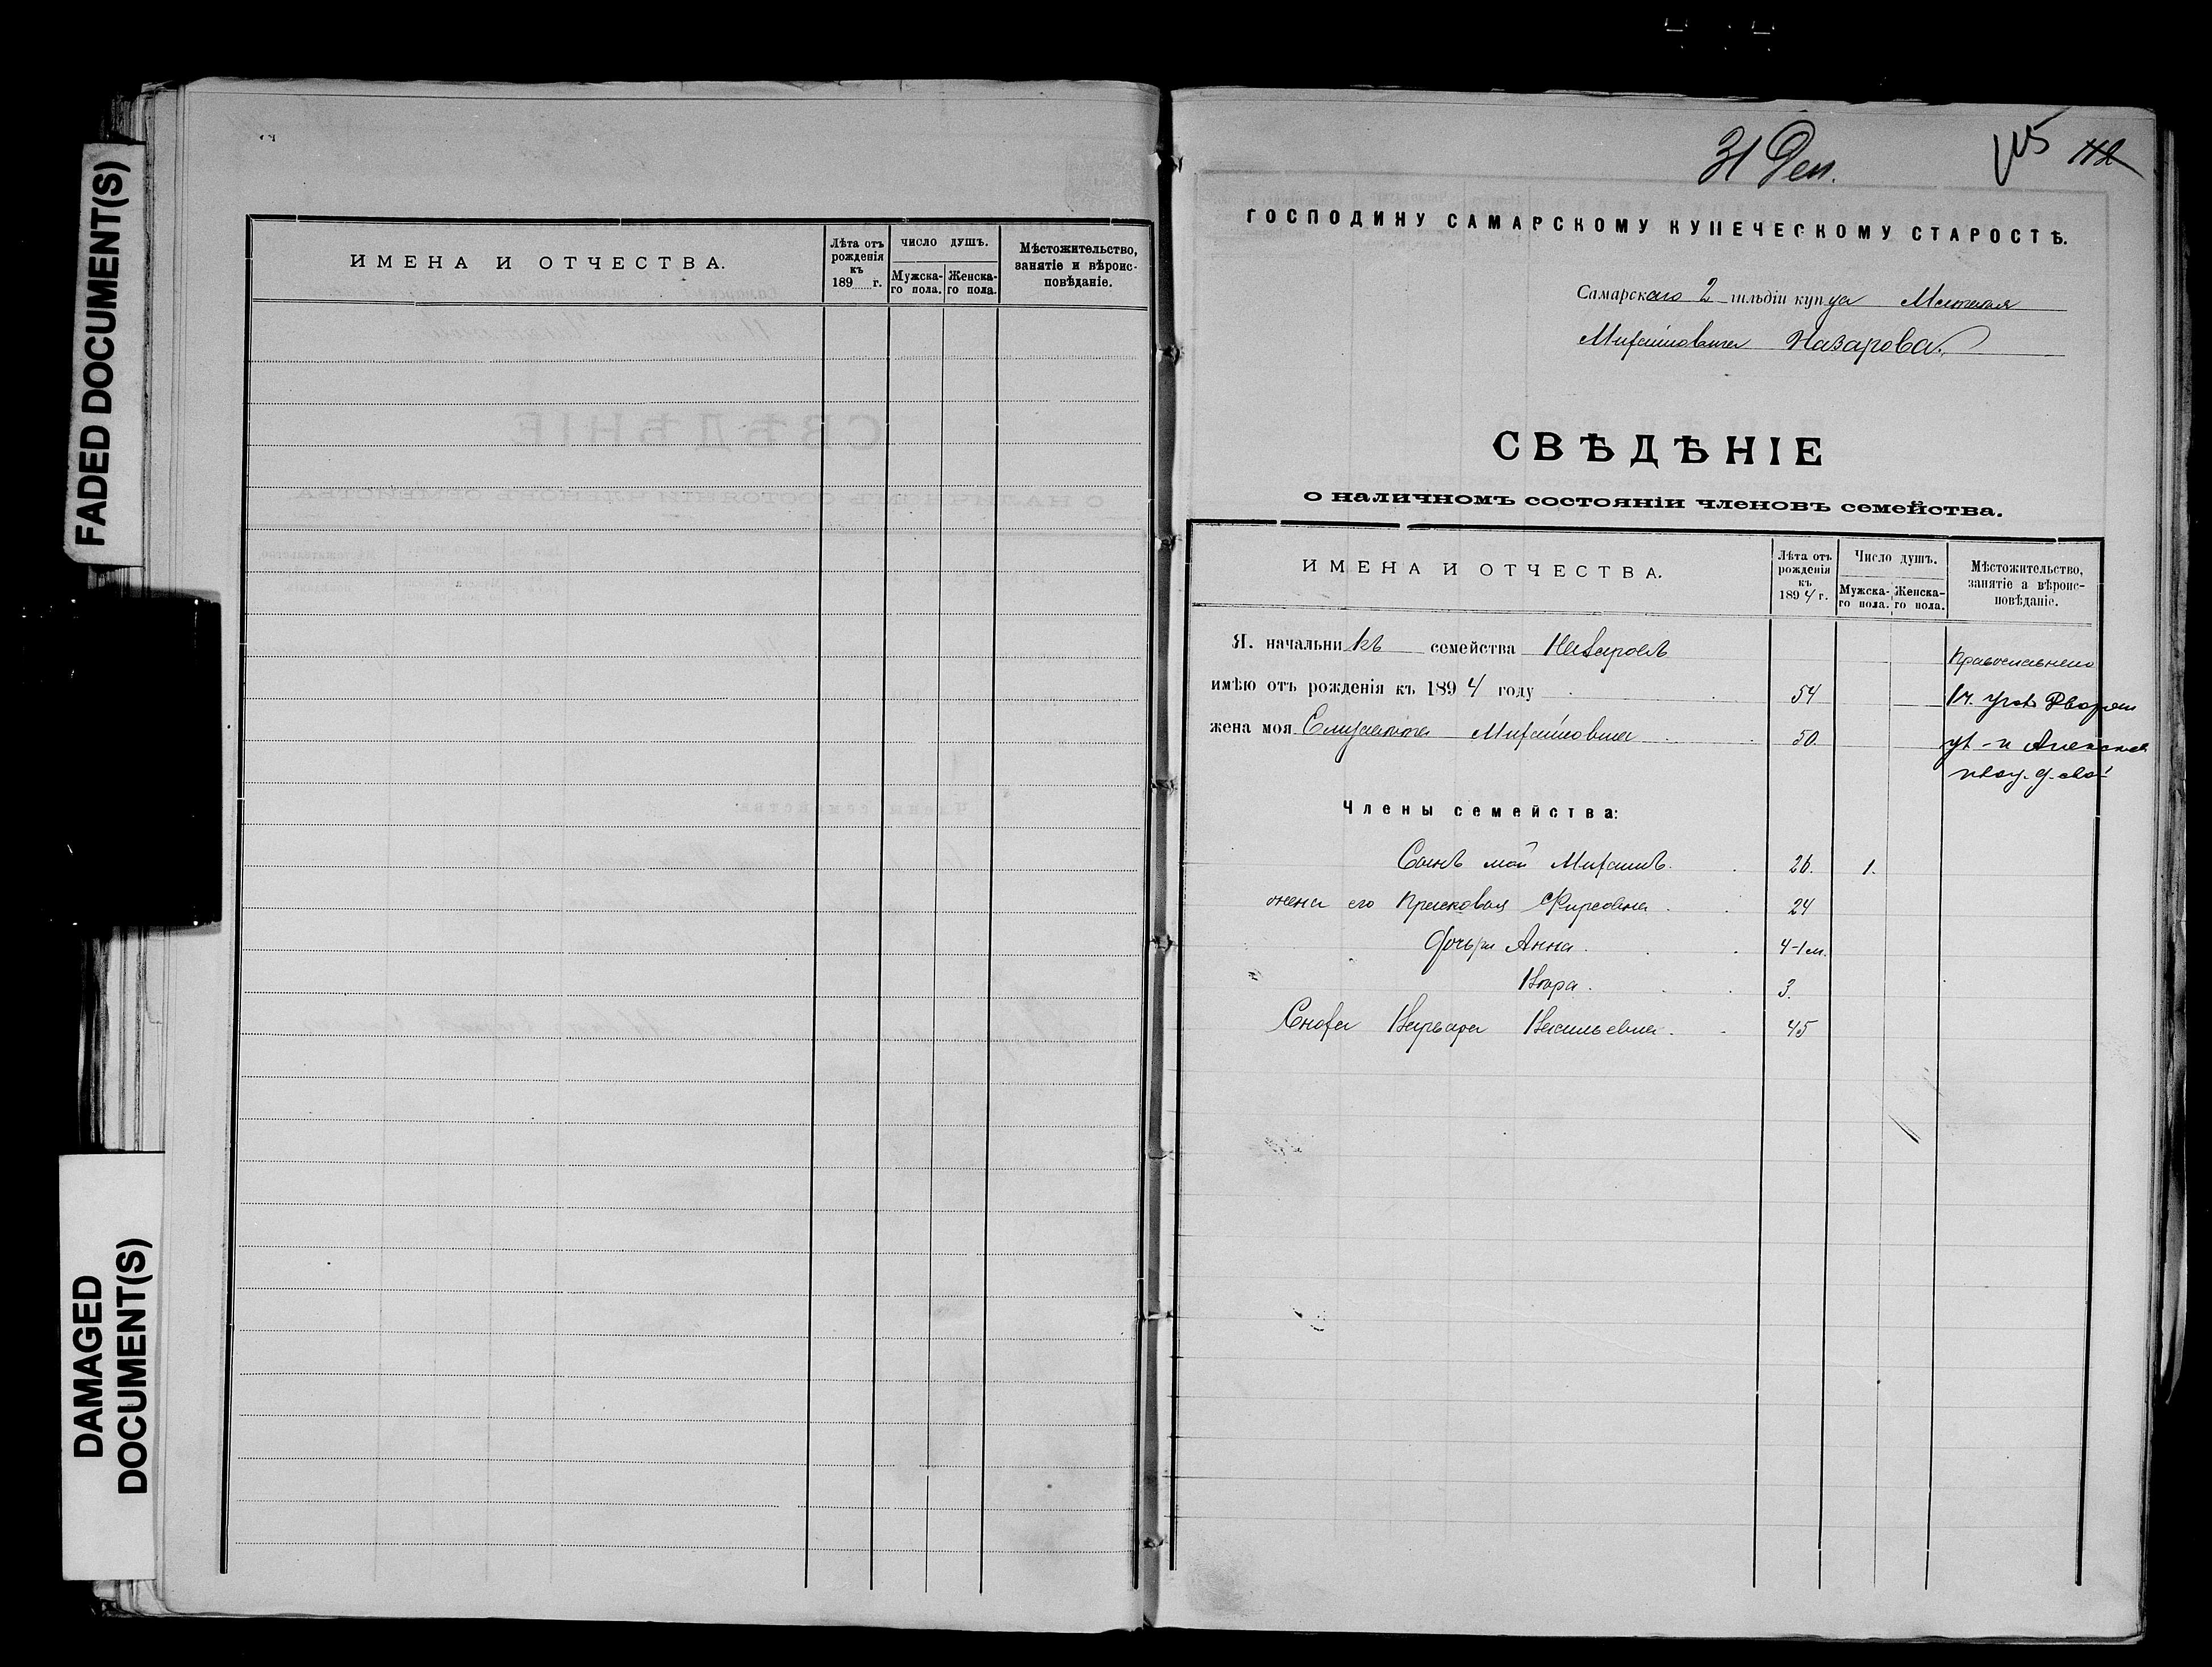 FADED DOCUMENT(S)
DAMAGED
DOCUMENT(S)
ИМЕНА И ОТЧЕСТВА.
Лѣта отъ
рожденія
къ
189 г.
ЧИСЛО ДУШЪ.
Мужска-
го пола.
Женска-
го пола.
Мѣстожительство,
занятіе и вѣроис-
повѣданіе.
31 Дек.
115 112
ГОСПОДИНУ САМАРСКОМУ КУПЕЧЕСКОМУ СТАРОСТѢ.
Самарскаго 2 гильдіи купца
Михайловича Назарова.
СВѢДѢНІЕ
о наличномъ состояніи членовъ семейства.
ИМЕНА И ОТЧЕСТВА.
Лѣта отъ
рожденія
къ
1894 г.
Число душъ.
Мужска-
го пола.
Женска-
го пола.
Мѣстожительство,
занятіе а вѣроис-
повѣданіе.
Я. начальникъ семейства Назаровъ
Православнаго
имѣю отъ рожденія къ 1894 году 54
1 ч. Дворян
жена моя Михайловна 50.
ул - и
д. свой
Члены семейства:
Сынъ мой Михаилъ. 26. 1.
жена его Прасковья Фирсовна 24
Дочери Анна. 4-1 м.
Вѣра. 3.
Сноха Варвара Васильевна. 45